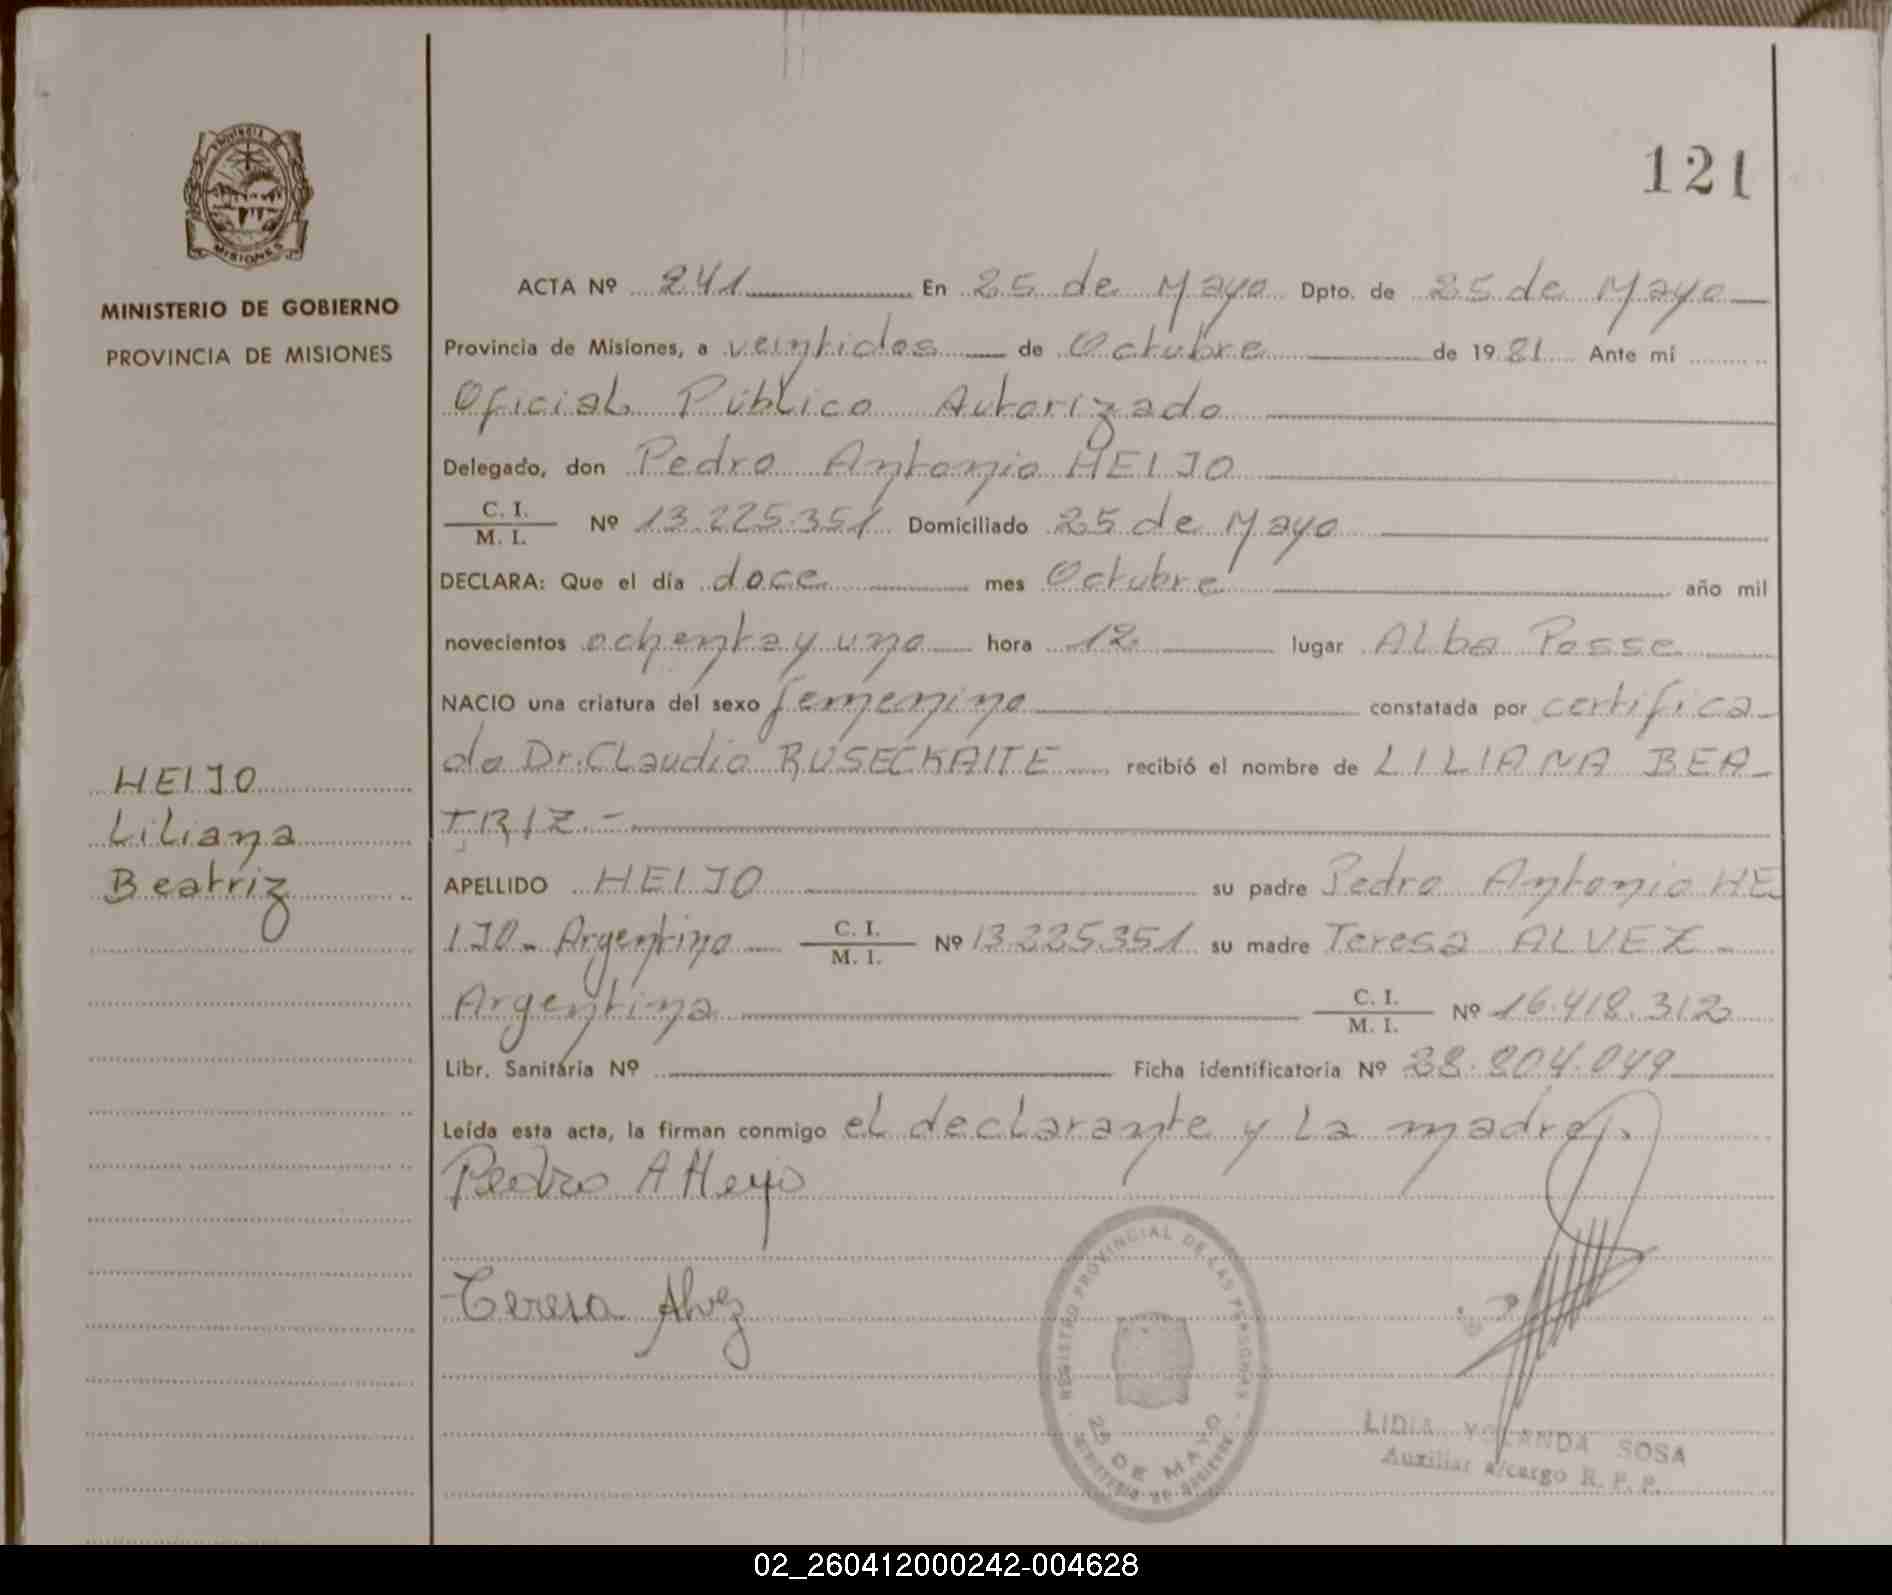 PROVINCIA
MISIONES
MINISTERIO DE GOBIERNO
PROVINCIA DE MISIONES
HEIJO
Liliana
Beatriz
121
ACTA Nº 241 En 25 de Mayo Dpto. de 25 de Mayo
Provincia de Misiones, a veintidos de Octubre de 1981 Ante mí
Oficial Público Autorizado
Delegado, don Pedro Antonio HEIJO
C. I. / M. I. Nº 13.225.351 Domiciliado 25 de Mayo
DECLARA: Que el día doce mes Octubre año mil
novecientos ochenta y uno hora 12 lugar Alba Posse
NACIO una criatura del sexo femenino constatada por certifica-
do Dr. Claudio RUSECKAITE recibió el nombre de LILIANA BEA-
TRIZ.-
APELLIDO HEIJO su padre Pedro Antonio HE
IJO- Argentino C. I. / M. I. Nº 13.225.351 su madre Teresa ALVEZ -
Argentina C. I. / M. I. Nº 16.418.312
Libr. Sanitária Nº Ficha identificatoria Nº 28.804.049
Leída esta acta, la firman conmigo el declarante y la madre.
Pedro A Heijo
Teresa Alvez
REGISTRO PROVINCIAL DE LAS PERSONAS
25 DE MAYO
Ministerio de Gobierno
LIDIA YOLANDA SOSA
Auxiliar a/cargo R. P. P.
02_260412000242-004628